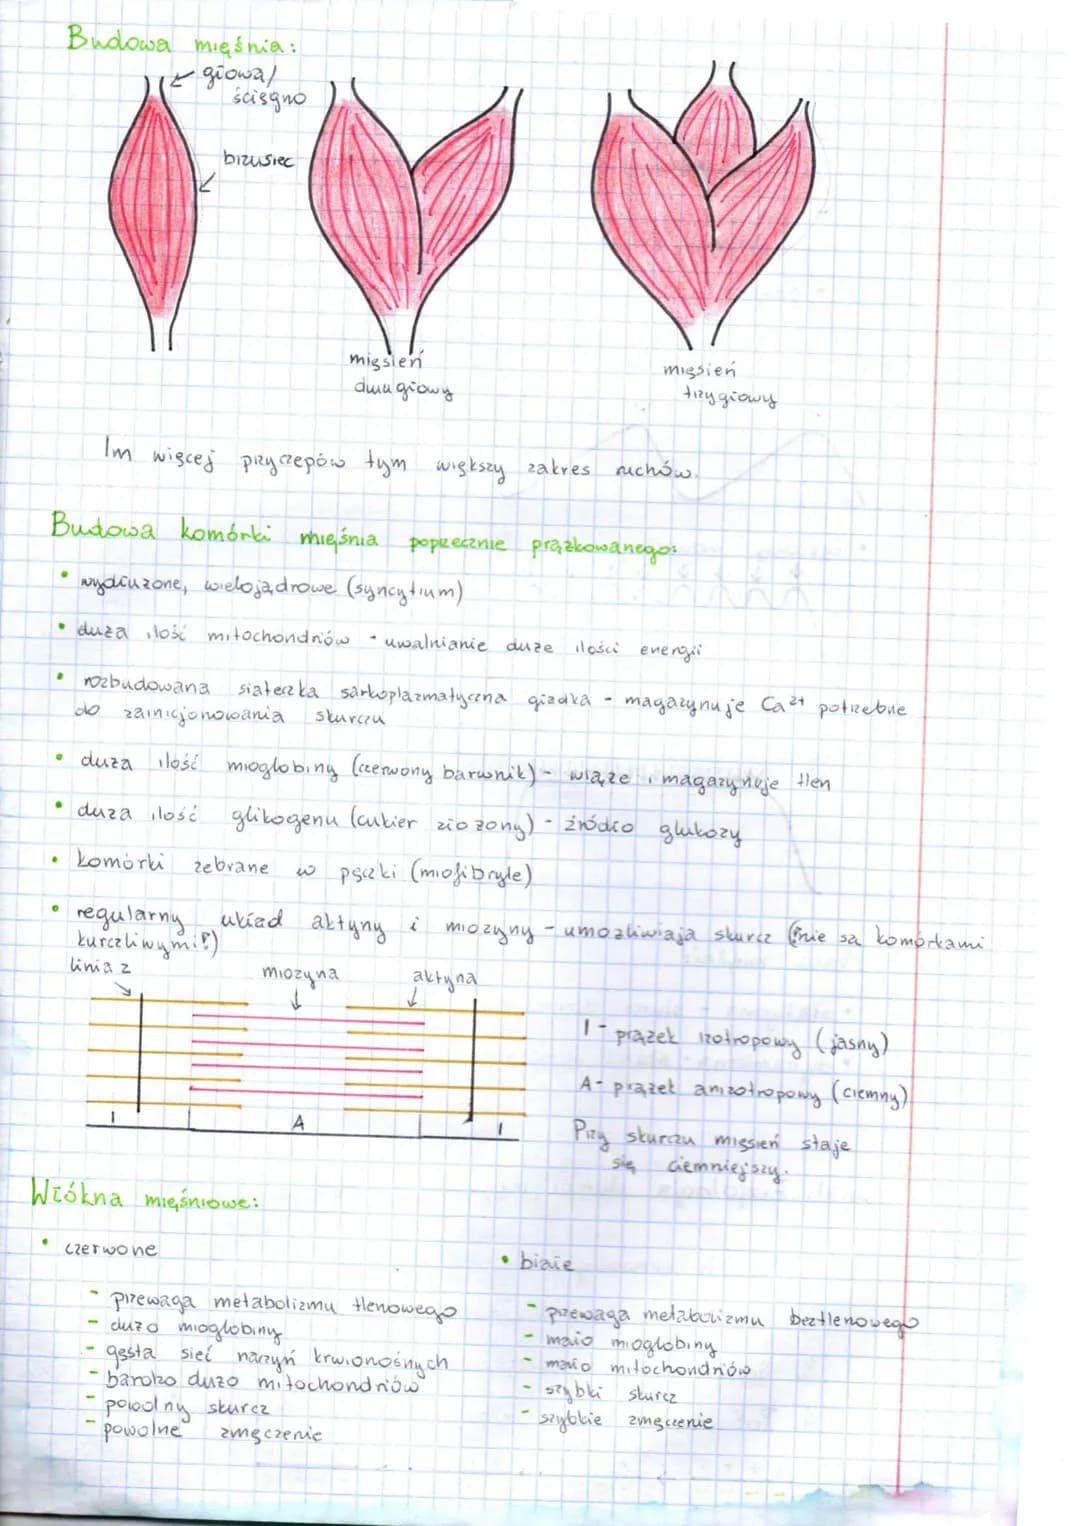 Budowa mięśnia:
głowa/
ścięgno
brzusiec
mięsień
dwugłowy
mięsień
trzygłowy
Im więcej przyczepów tym większy zakres ruchów.
Budowa komórki mięśnia poprzecznie prążkowanego:
• wydłużone, wielojądrowe (syncytium)
• duża ilość mitochondriów - uwalnianie duże ilości energii
• rozbudowana siateczka sarkoplazmatyczna gładka - magazynuje Ca²⁺ potrzebne
do zainicjonowania skurczu
• duża ilość mioglobiny (czerwony barwnik) - wiąże i magazynuje tlen
• duża ilość glikogenu (cukier złożony) - źródło glukozy
• komórki zebrane w pęczki (miofibryle)
• regularny układ aktyny i miozyny - umożliwiają skurcz (nie są komórkami
kurczliwymi!)
linia z
miozyna
aktyna
I A I
I - prążek izotropowy (jasny)
A - prążek anizotropowy (ciemny)
Przy skurczu mięsień staje
się ciemniejszy.
Włókna mięśniowe:
• czerwone
- przewaga metabolizmu tlenowego
- dużo mioglobiny
- gęsta sieć naczyń krwionośnych
- bardzo dużo mitochondriów
- powolny skurcz
- powolne zmęczenie
• białe
- przewaga metabolizmu beztlenowego
- mało mioglobiny
- mało mitochondriów
- szybki skurcz
- szybkie zmęczenie